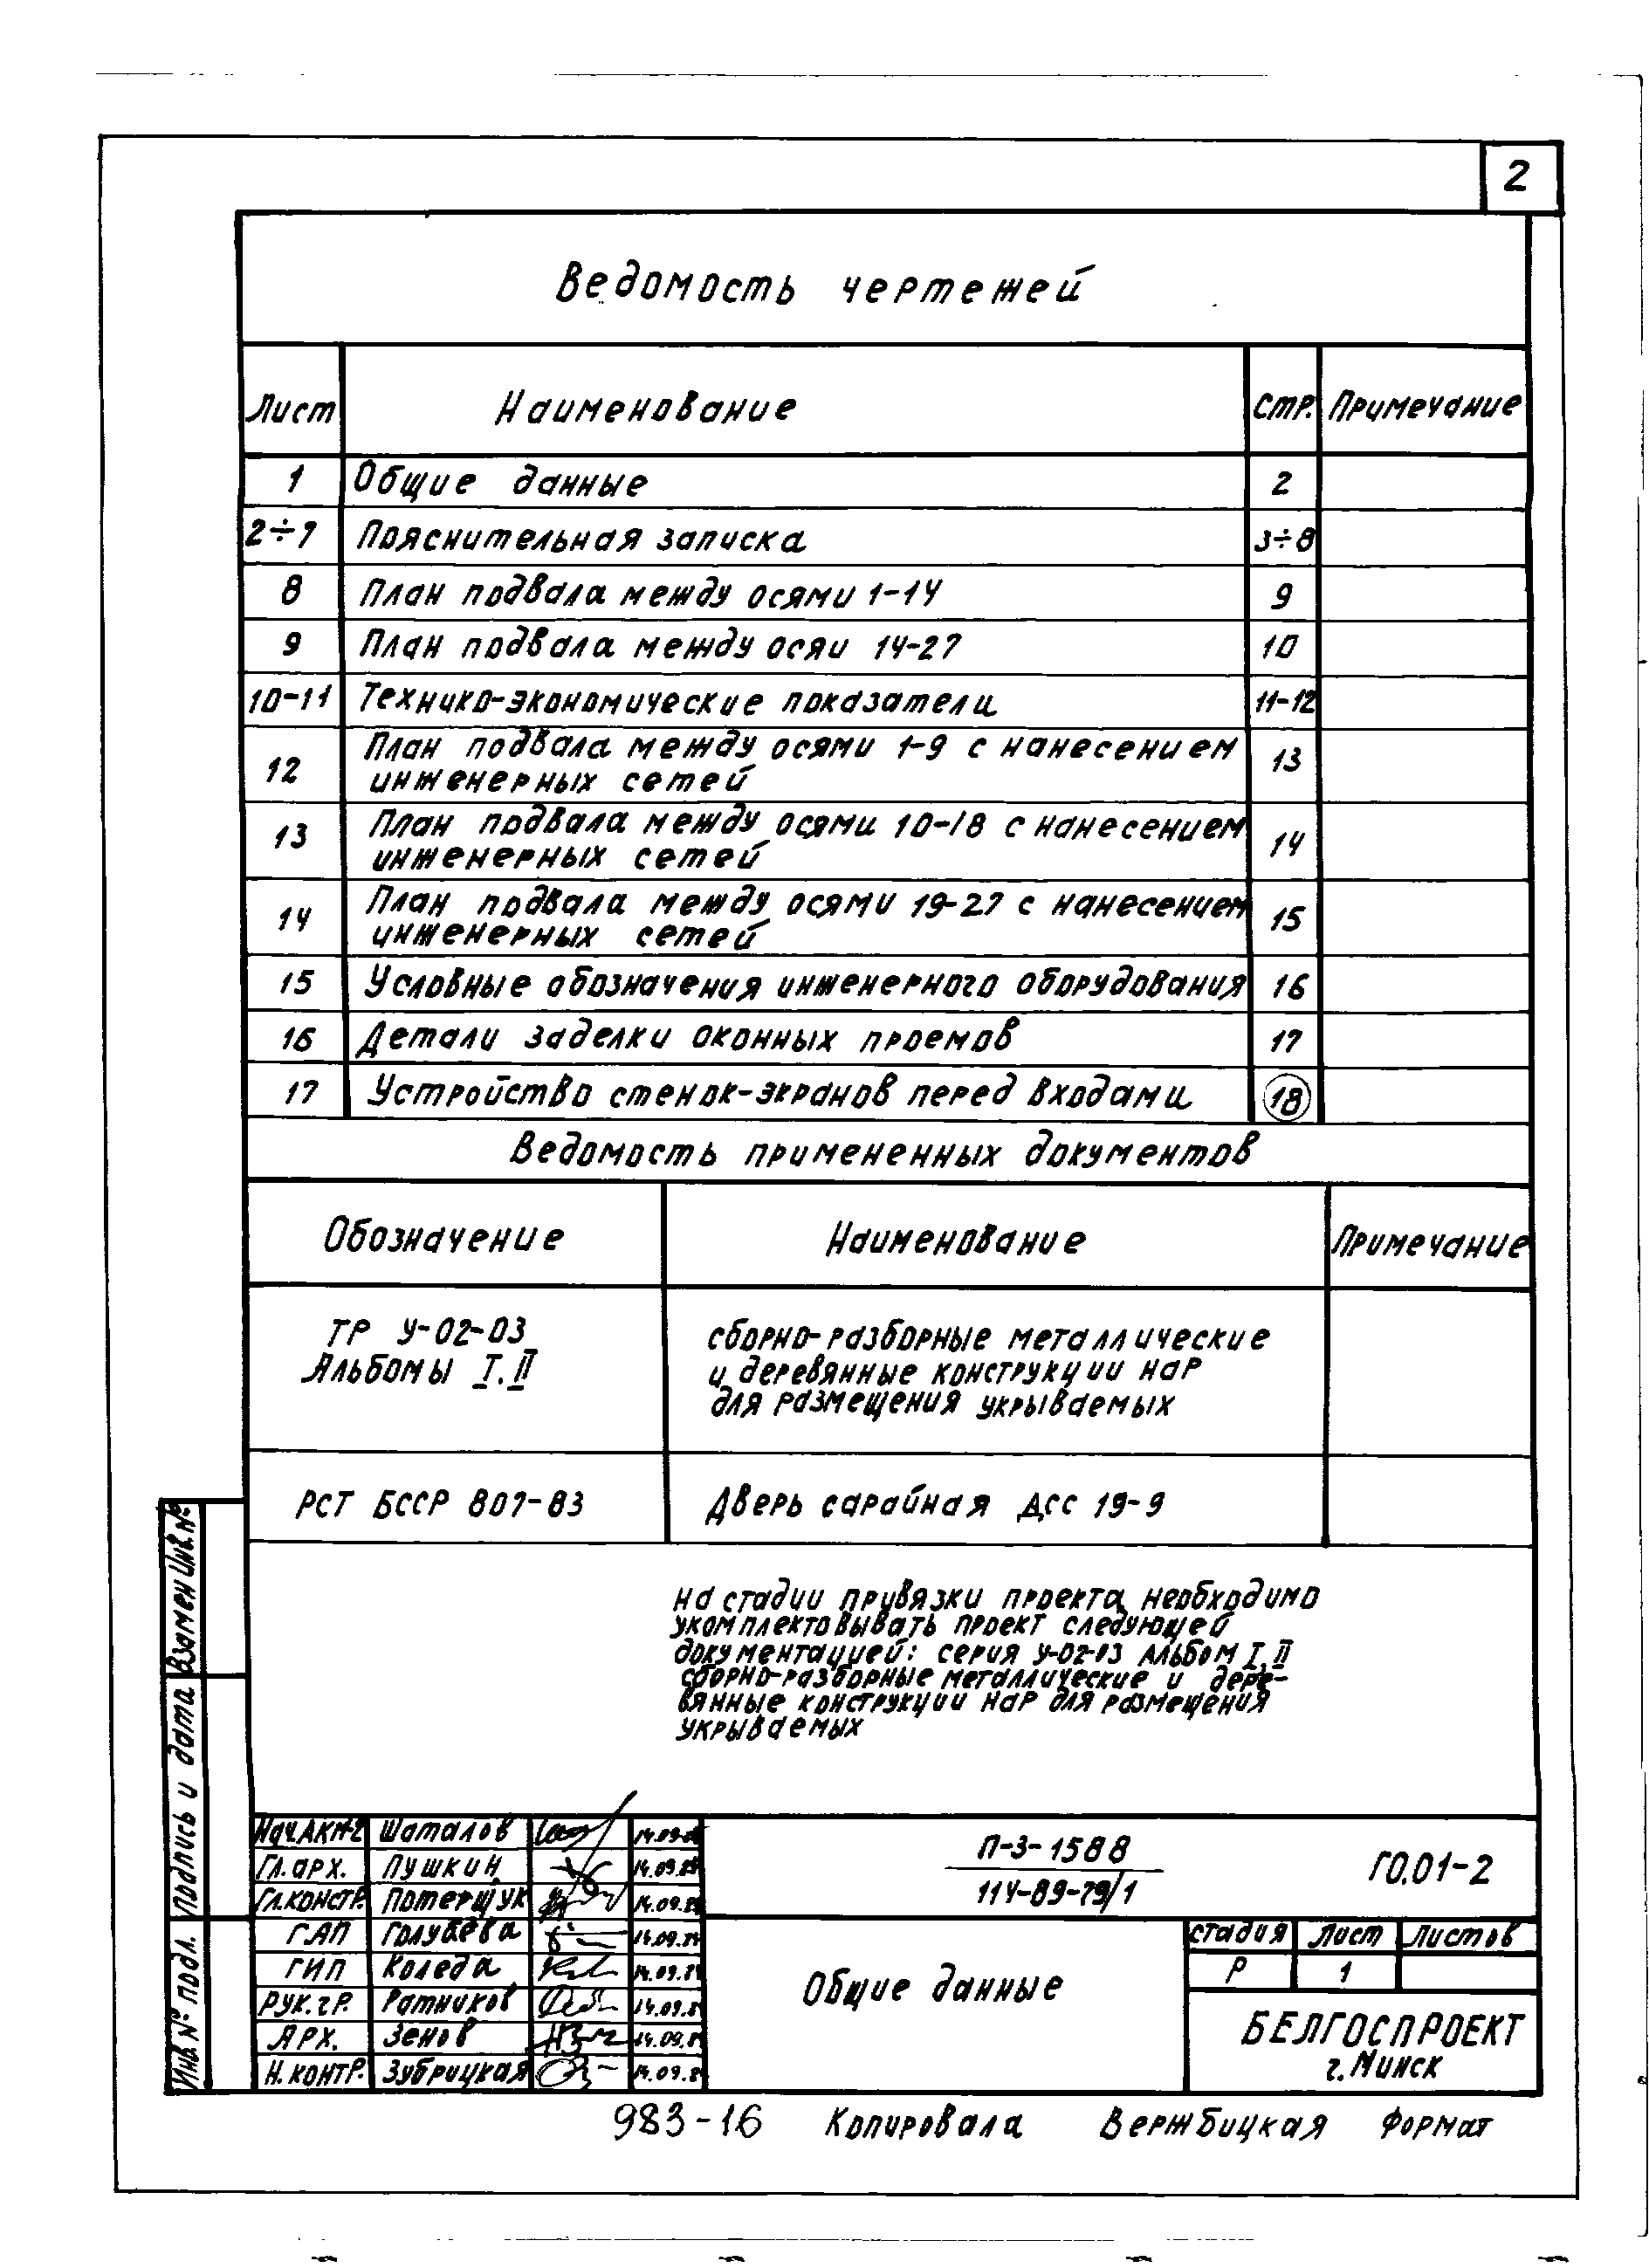 2
Ведомость чертежей
Лист Наименование Стр. Примечание
1 Общие данные 2
2÷7 Пояснительная записка 3÷8
8 План подвала между осями 1-14 9
9 План подвала между осяи 14-27 10
10-11 Технико-экономические показатели 11-12
12 План подвала между осями 1-9 с нанесением 13
инженерных сетей
13 План подвала между осями 10-18 с нанесением 14
инженерных сетей
14 План подвала между осями 19-27 с нанесением 15
инженерных сетей
15 Условные обозначения инженерного оборудования 16
16 Детали заделки оконных проемов 17
17 Устройство стенок-экранов перед входами 18
Ведомость примененных документов
Обозначение Наименование Примечание
ТР У-02-03
Альбомы I.II
сборно-разборные металлические
и деревянные конструкции нар
для размещения укрываемых
РСТ БССР 807-83 Дверь сарайная ДСС 19-9
на стадии привязки проекта необходимо
укомплектовывать проект следующей
документацией: серия У-02-03 Альбом I,II
сборно-разборные металлические и дере-
вянные конструкции нар для размещения
укрываемых
Взамен Инв.№
Подпись и дата
Инв № подл.
Нач.АКМ-2 Шаталов
Гл.арх. Пушкин
Гл.констр. Потерщук
ГАП Голубева
ГИП Коледа
Рук.гр. Ратников
Арх. Зенов
Н.контр. Зубрицкая
П-3-1588
114-89-79/1
ГО.01-2
Общие данные
стадия Лист Листов
Р 1
БЕЛГОСПРОЕКТ
г.Минск
983-16 Копировала Вержбицкая Формат